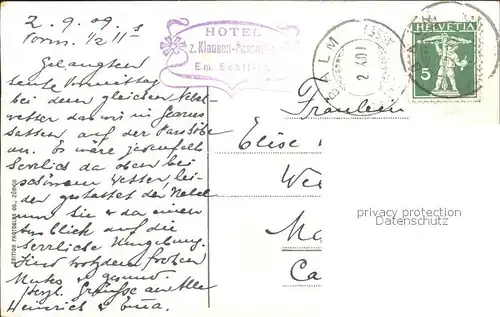 2. 9. 09. s
Vorm. 1/2 11 h
HOTEL
z. Klausen-Passhöhe
Em. Schillig
ALM
2. X. 09
HELVETIA
5
Gelangten
heute Vormittag
bei dem gleichen Nebel-
wetter das wir in Glarus
hatten auf der Passhöhe
an. Es wäre jedenfalls
herrlich da oben bei
schönem Wetter, lei-
der gestattet der Nebel
nur hie & da einen
Ausblick auf die
herrliche Umgebung.
Sind trotzdem frohen
Mutes & gesund.
Herzl. Grüsse an Alle
Heinrich &
Fräulein
Elise
We
Ca
privacy protection
Datenschutz